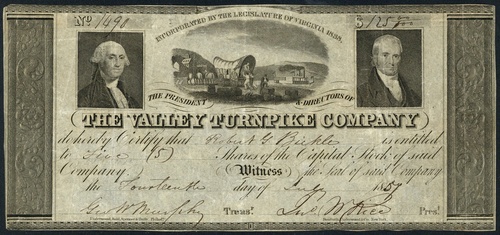 No 1490 $125
INCORPORATED BY THE LEGISLATURE OF VIRGINIA 1838.
THE PRESIDENT & DIRECTORS OF
THE VALLEY TURNPIKE COMPANY
do hereby Certify that Robert G Bickle is entitled
to Five (5) Shares of the Capital Stock of said
Company (Witness) the Seal of said Company
the Fourteenth day of July 1857
Geo W Murphy Treasr. Jno. W Rice Prest.